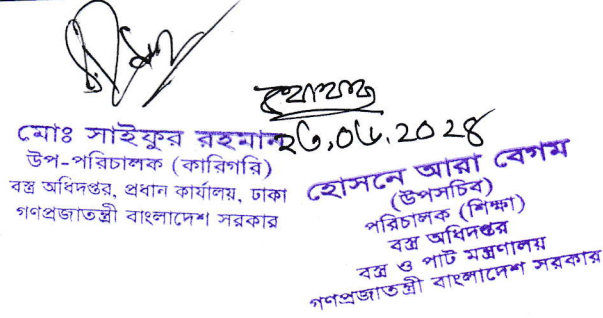 মোঃ সাইফুর রহমান
উপ-পরিচালক (কারিগরি)
বস্ত্র অধিদপ্তর, প্রধান কার্যালয়, ঢাকা
গণপ্রজাতন্ত্রী বাংলাদেশ সরকার
হোসনে আরা বেগম
(উপসচিব)
পরিচালক (শিক্ষা)
বস্ত্র অধিদপ্তর
বস্ত্র ও পাট মন্ত্রণালয়
গণপ্রজাতন্ত্রী বাংলাদেশ সরকার